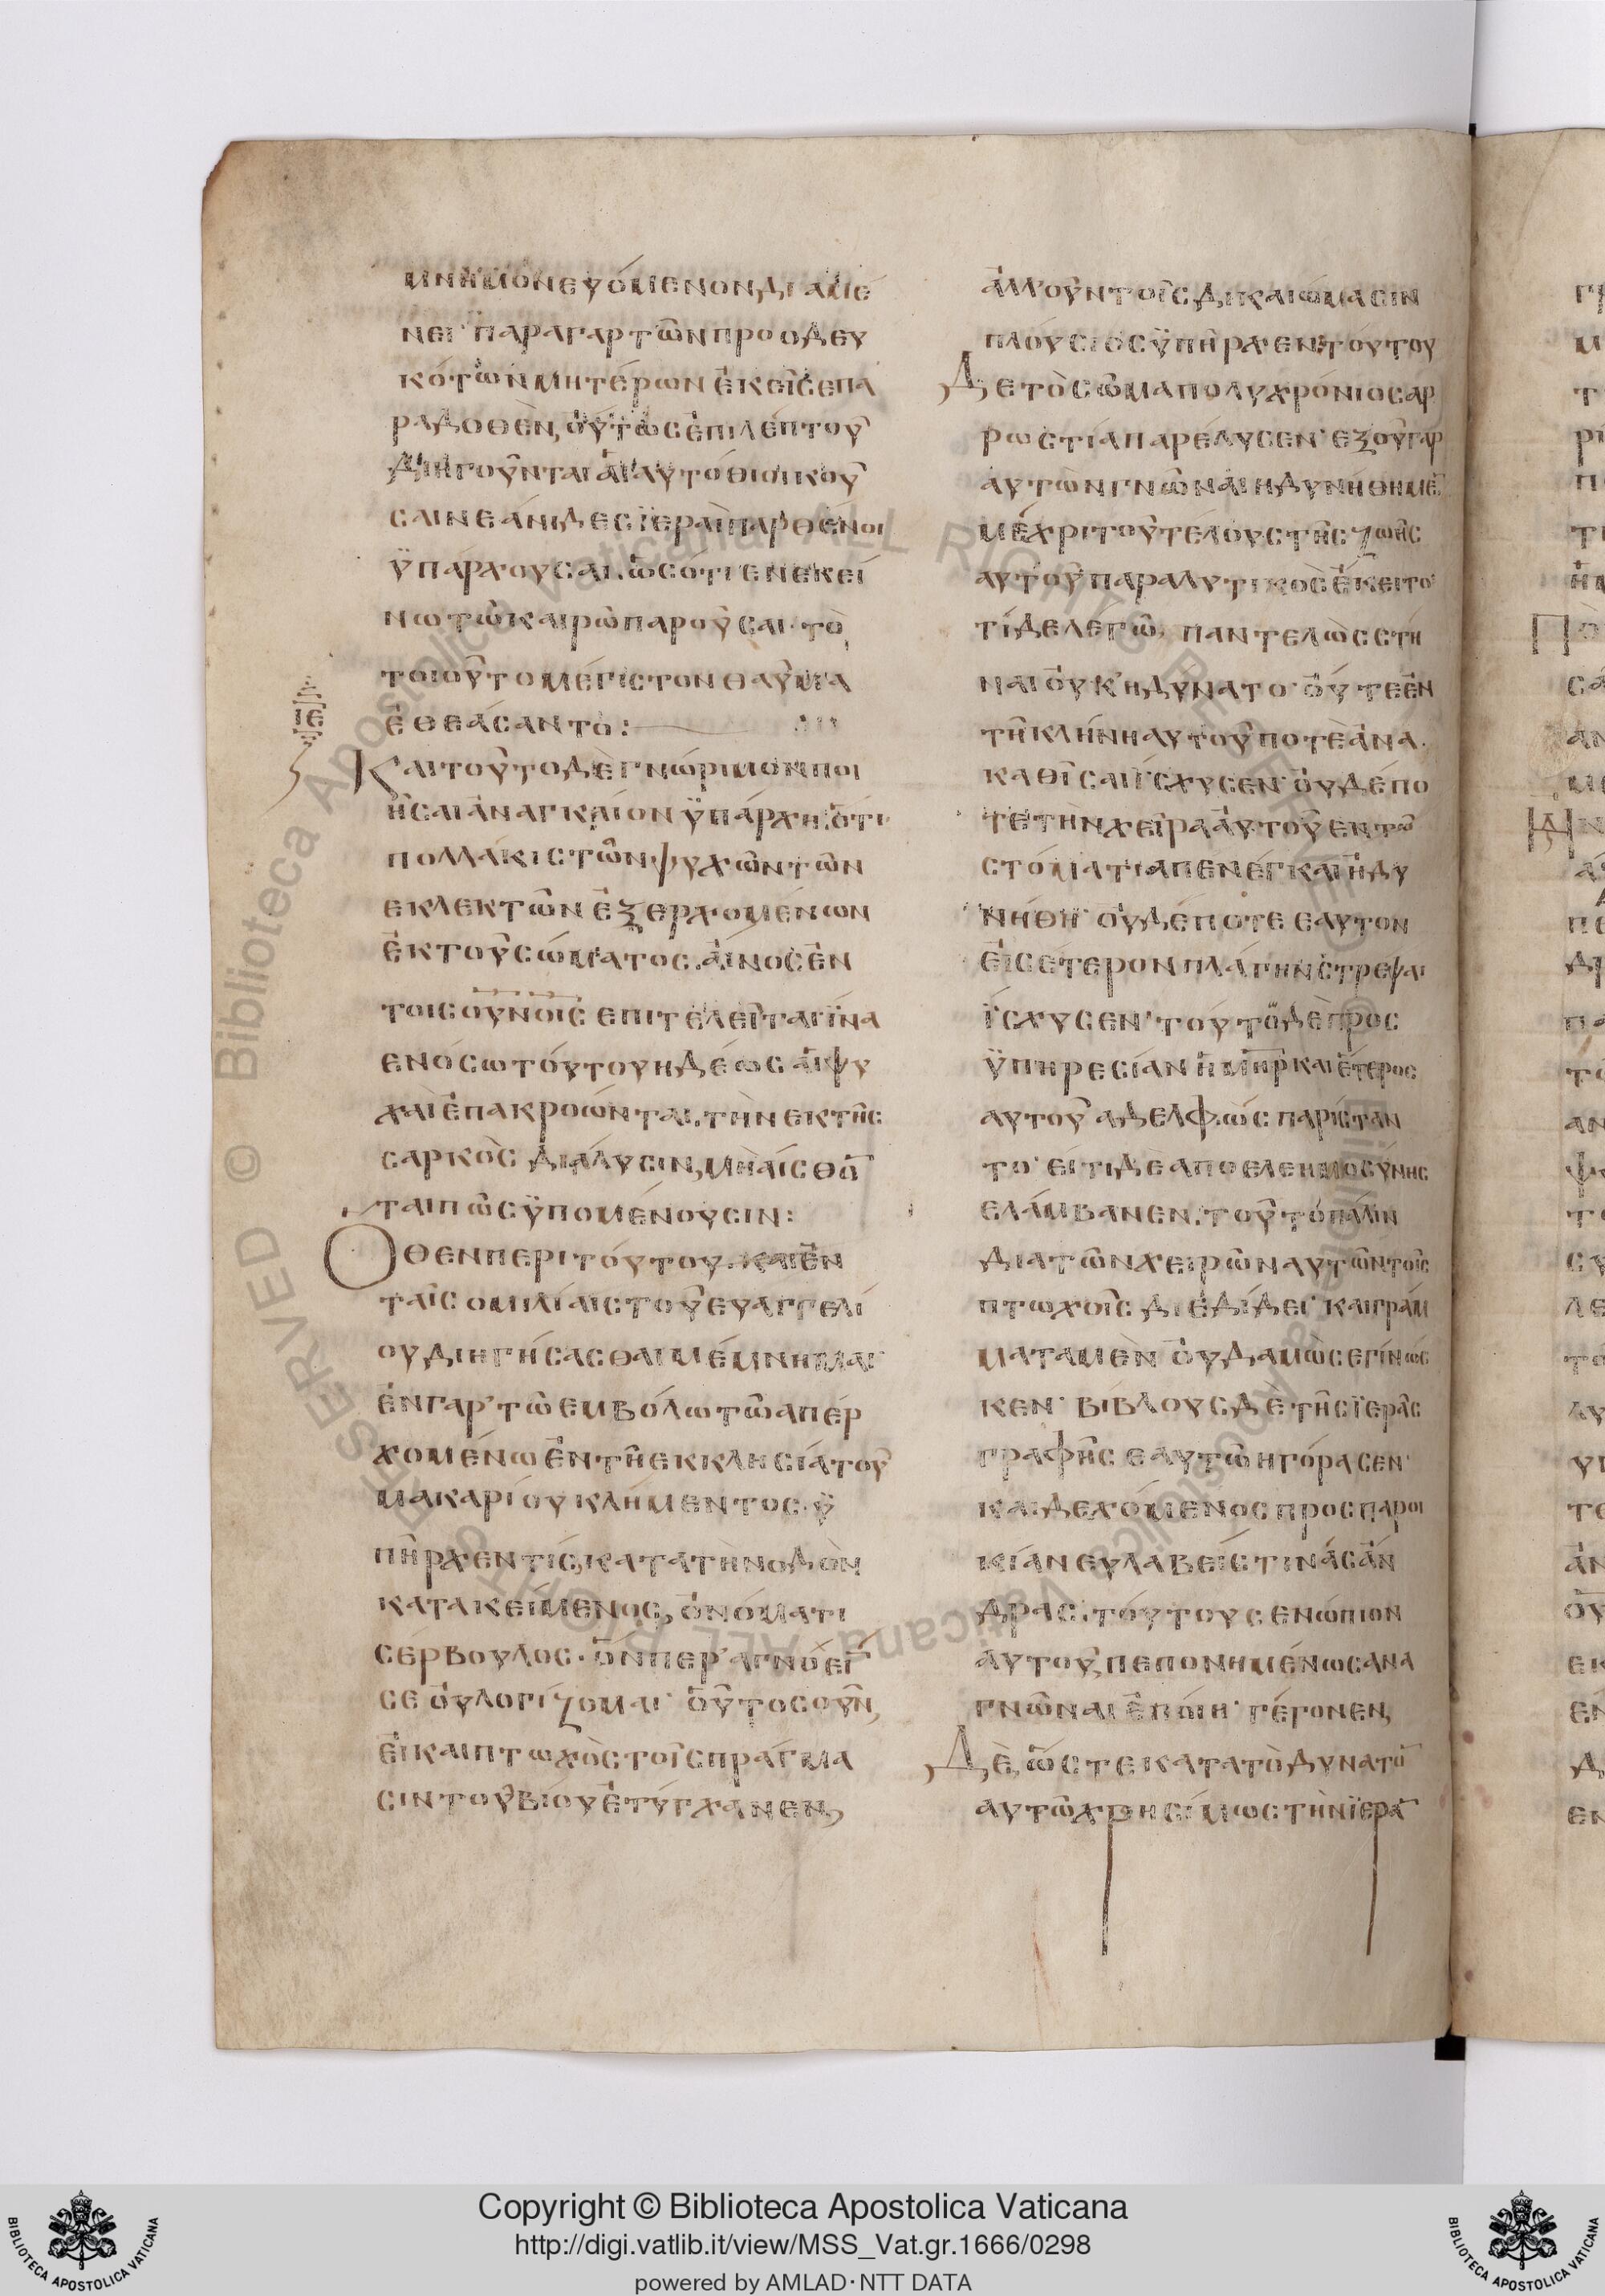 μνημονευόμενον, διαμέ
νει· παρα γαρ τῶν προοδευ
κότων μητέρων ἐκεῖσε πα
ραδοθὲν, οὕτως ἐπιλέπτου
διηγοῦνται αἱ αυτόθι οἰκοῦ
σαι νεάνιδες ϊεραὶ παρθένοι
ϋπάρχουσαι. ὡς ότι εν εκεί
νω τῶ καιρῶ παροῦσαι· τὸ
τοιοῦτο μέγιστον θαῦμα
ἐθεάσαντο:
ΙΕ
Και τοῦτο δὲ γνώριμον ποι
ῆσαι ἀναγκαίον ϋπάρχη· ὅτι
πολλάκις τῶν ψυχῶν τῶν
εκλεκτῶν ἐξερχομένων
ἐκ τοῦ σώματος. αἶνος ἐν
τοις οὐνοῖς επιτελεῖται ἵνα
εν όσω τούτου ηδέως αἱ ψυ
χαὶ ἐπακροώνται. τὴν εκ τῆς
σαρκὸς διάλυσιν, μὴ αίσθο̄
ται πῶς ϋπομένουσιν:
Οθεν περι τούτου. και ἐν
ταῖς ομιλίαις τοῦ ευαγγελί
ου διηγήσασθαι μέμνημαι·
ἐν γαρ τῶ εμβόλω τῶ απερ
χομένω ἐν τῆ εκκλησία τοῦ
μακαρίου κλήμεντος. ϋ
πῆρχεν τίς, κατα τὴν οδὸν
κατακείμενος, ὀνόματι
σέρβουλος. ὅνπερ αγνοεῖ
σε οὐ λογίζομαι· οὗτος οῦν,
εἰ και πτωχὸς τοῖς πράγμα
σιν τοῦ βίου ἐτύγχανεν,
ἀλλ' οῦν τοῖς δικαιώμασιν
πλούσιος ϋπῆρχεν· τούτου
Δε τὸ σῶμα πολυχρόνιος αρ
ρωστία παρέλυσεν· εξ οῦ γαρ
αυτὼν γνῶναι ηδυνήθημε̄
μέχρι τοῦ τέλους τῆς ζωῆς
αυτοῦ παραλυτικὸς ἔκειτο·
τί δε λέγω, παντελῶς στῆ
ναι οὐκ ηδύνατο· οὔτε ἐν
τῆ κλήνη αυτοῦ ποτὲ ἀνα
καθῖσαι ΐσχυσεν· οὐδέπο
τε τὴν χεῖρα ἀυτοῦ εν τῶ
στόματι απενέγκαι ἠδυ
νήθη· οὐδέποτε εαυτον
εἰς έτερον πλάγην στρέψαι
ΐσχυσεν· τούτο δὲ προς
ϋπηρεσίαν ἡ μη̄ρ και ἕτερος
αυτοῦ αδελφὼς παρίσταν
το· εί τι δε απο ελεημοσύνης
ελάμβανεν. τοῦτο πάλιν
δια τῶν χειρῶν αυτῶν τοῖς
πτωχοῖς διεδίδει· και γράμ
ματα μὲν οὐδαμῶς εγίνως
κεν· βίβλους δὲ τῆς ϊερᾶς
γραφῆς εαυτῶ ηγόρασεν·
και δεχόμενος προς παροι
κίαν ευλαβείς τινάς ἄν
δρας. τούτους ενώπιον
αυτοῦ, πεπονημένως ανα
γνῶναι ἐποίη· γέγονεν,
Δὲ, ὥστε κατα τὸ δυνατο̄
αυτῶ χρησίμως τὴν ϊερᾱ
Copyright © Biblioteca Apostolica Vaticana
http://digi.vatlib.it/view/MSS_Vat.gr.1666/0298
powered by AMLAD·NTT DATA